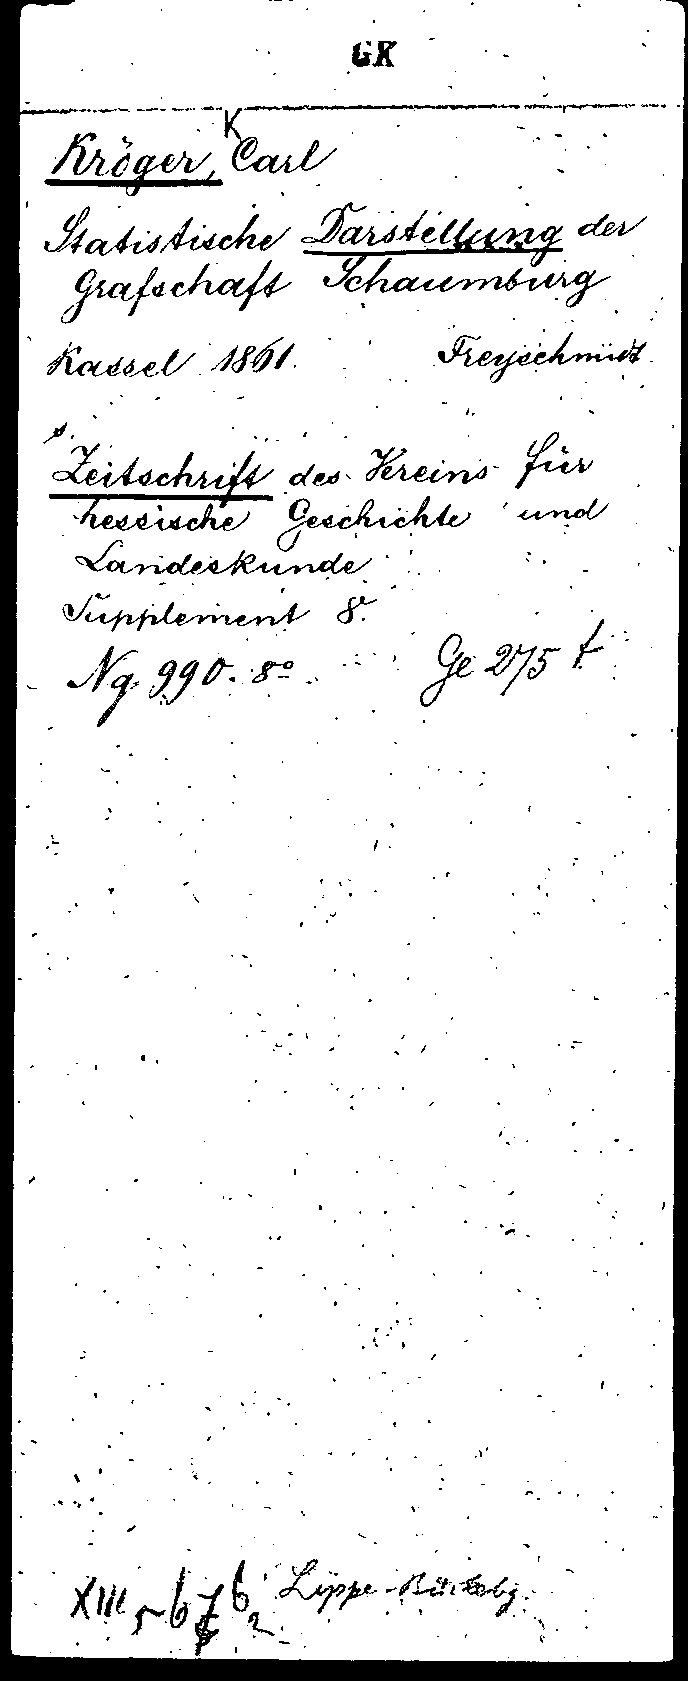 GK
K
Kröger, Carl
Statistische Darstellung der
Grafschaft Schaumburg
Kassel 1861. Freyschmidt
Zeitschrift des Vereins für
hessische Geschichte und
Landeskunde
Supplement 8.
Ng 990. 8º Ge 275 t
XIII Lippe-Bückebg.